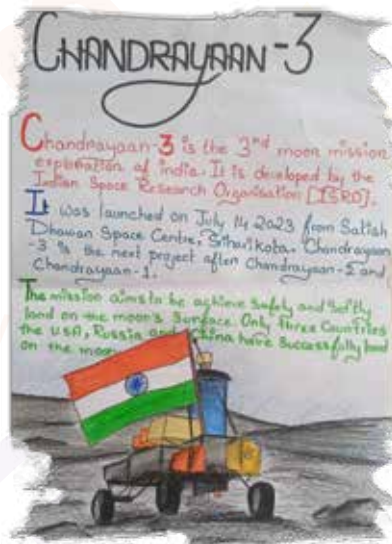 CHANDRAYAAN-3
Chandrayaan-3 is the 3nd moon mission
exploration of india. It is developed by the
Indian Space Research Organisation [ISRO].
It was launched on July 14 2023 from Satish
Dhawan Space Centre, Sriharikota. Chandrayaan
-3 is the next project after Chandrayaan-2 and
Chandrayaan-1.
The mission aims to be achieve safely and softly
land on the moon's surface. Only three Countries
the USA, Russia and China have successfully land
on the moon